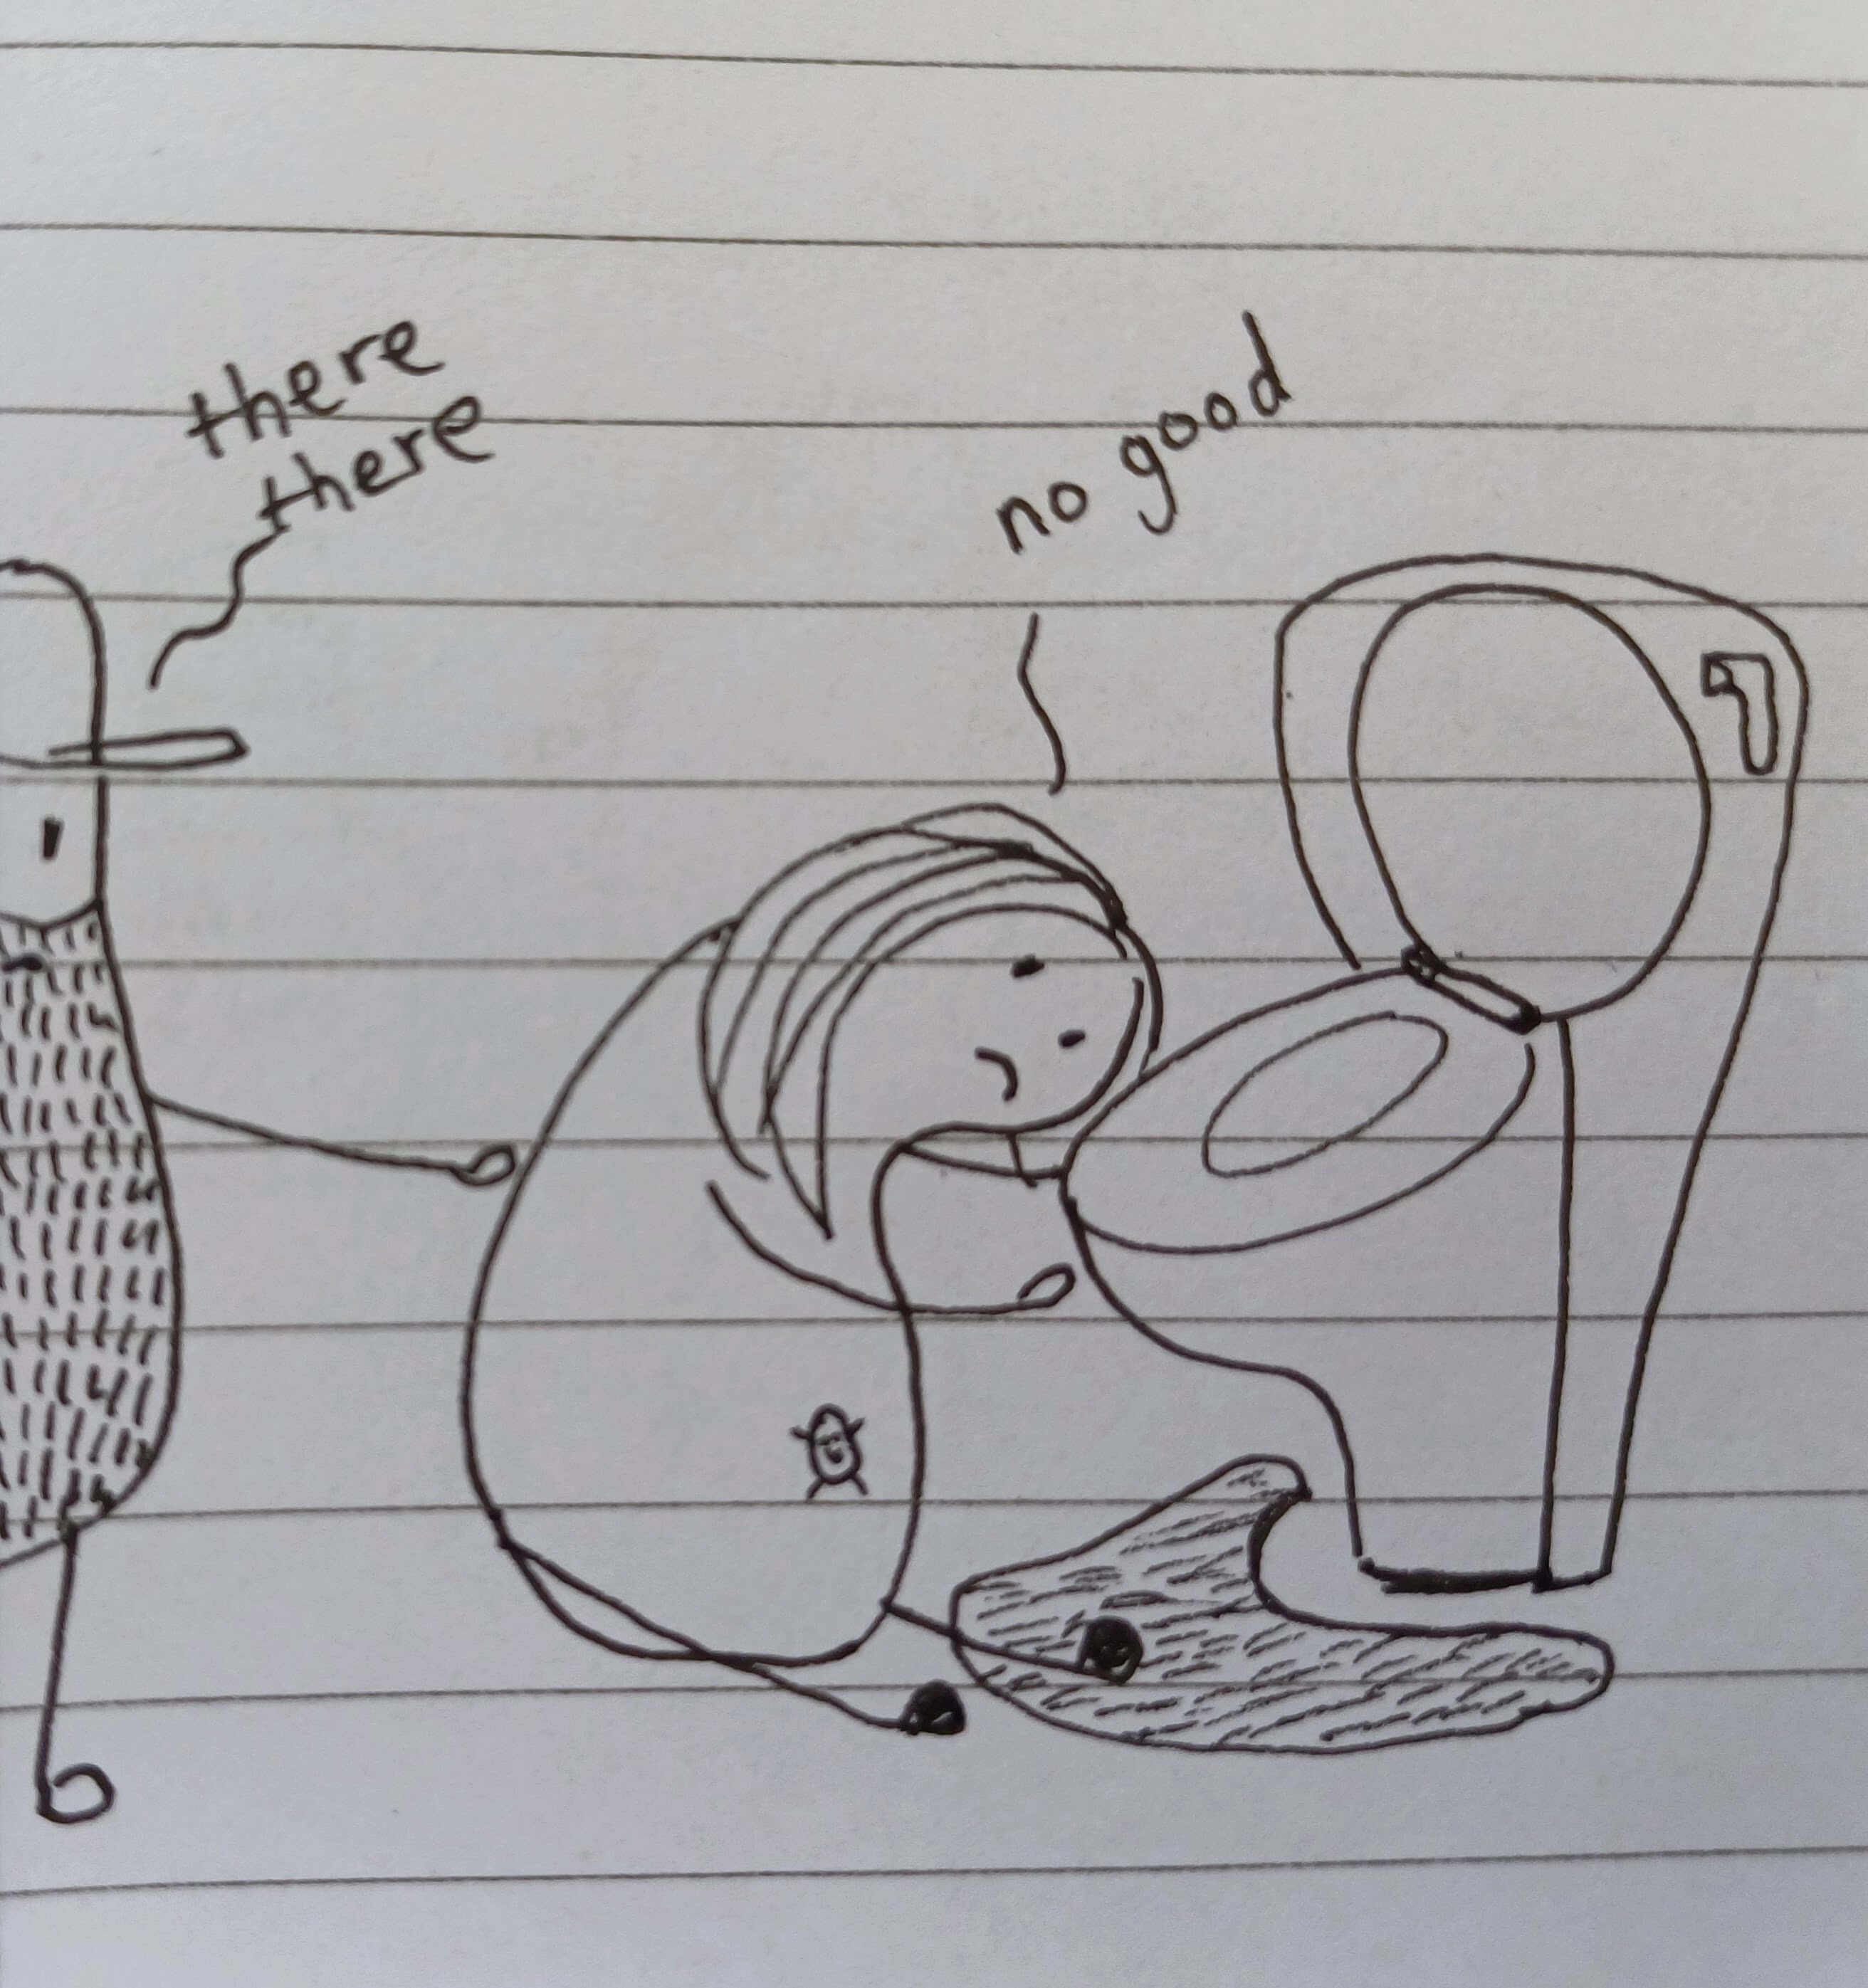 there
there
no good